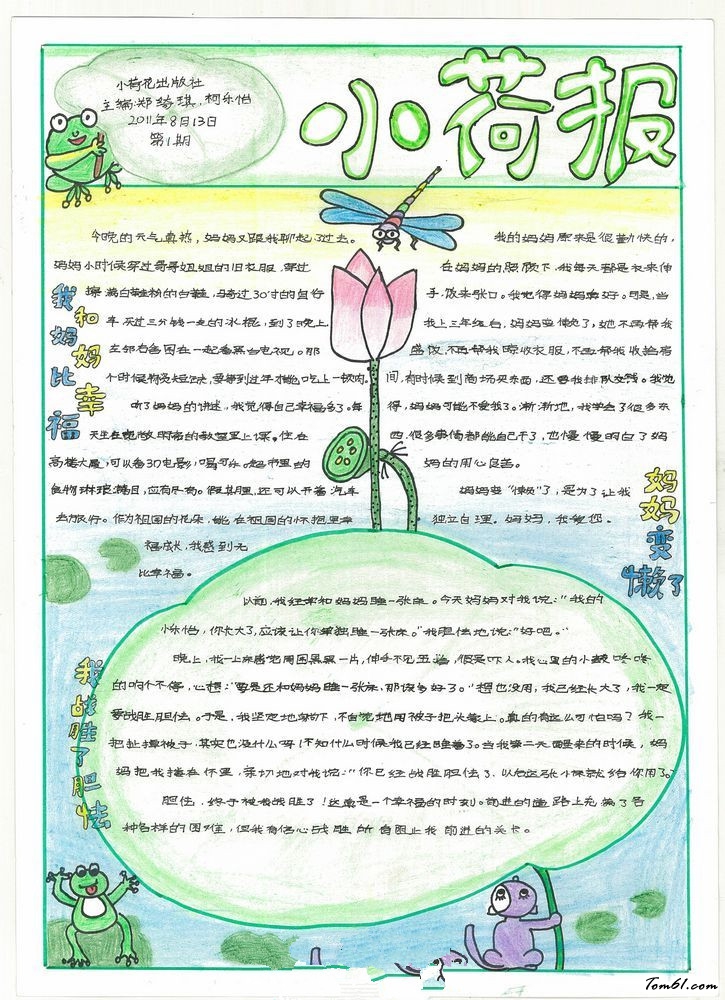 小荷花出版社
主编:郑绮琪,柯乐怡
2011年8月13日
第1期
小荷报
我和妈妈比幸福
今晚的天气真热,妈妈又跟我聊起了过去。
妈妈小时候穿过哥哥姐姐的旧衣服,穿过
擦满白鞋粉的白鞋,骑过30寸的自行
车,买过三分钱一支的冰棍,到了晚上,
左邻右舍围在一起看黑白电视。那
个时候物资短缺,要等到过年才能吃上一顿肉。
听了妈妈的讲述,我觉得自己幸福多了。每
天坐在宽敞明亮的教室里上课。住在
高楼大厦,可以看3D电影,喝可乐。超市里的
食物琳琅满目,应有尽有。假期里,还可以开着汽车
去旅行。作为祖国的花朵,能在祖国的怀抱里幸
福成长,我感到无
比幸福。
妈妈变懒了
我的妈妈原来是很勤快的,
在妈妈的照顾下,我每天都是衣来伸
手,饭来张口。我觉得妈妈真好。可是,当
我上三年级后,妈妈变懒了,她不再帮我
盛饭,不再帮我晾收衣服,不再帮我收拾房
间,有时候到商场买东西,还要我排队交钱。我觉
得,妈妈可能不爱我了。渐渐地,我学会了很多东
西,很多事情都能自己干了,也慢慢明白了妈
妈的用心良苦。
妈妈变“懒”了,是为了让我
独立自理。妈妈,我爱您。
我战胜了胆怯
以前,我经常和妈妈睡一张床。今天妈妈对我说:“我的
小乐怡,你长大了,应该让你单独睡一张床。”我胆怯地说:“好吧。”
晚上,我一上床感觉周围黑黑一片,伸手不见五指,很是吓人。我心里的小鼓咚咚
的响个不停,心想:“要是还和妈妈睡一张床,那该多好了。”想也没用,我已经长大了,我一定
要战胜胆怯。于是,我坚定地躺下,不自觉地用被子把头蒙上。真的有这么可怕吗?我一
把扯掉被子,其实也没什么呀!不知什么时候我已经睡着了。当我第二天醒来的时候,妈
妈把我搂在怀里,亲切地对我说:“你已经战胜胆怯了,以后这张小床就给你用了。”
胆怯,终于被我战胜了!这真是一个幸福的时刻。前进的道路上充满了各
种各样的困难,但我有信心战胜所有阻止我前进的关卡。
Tom61.com